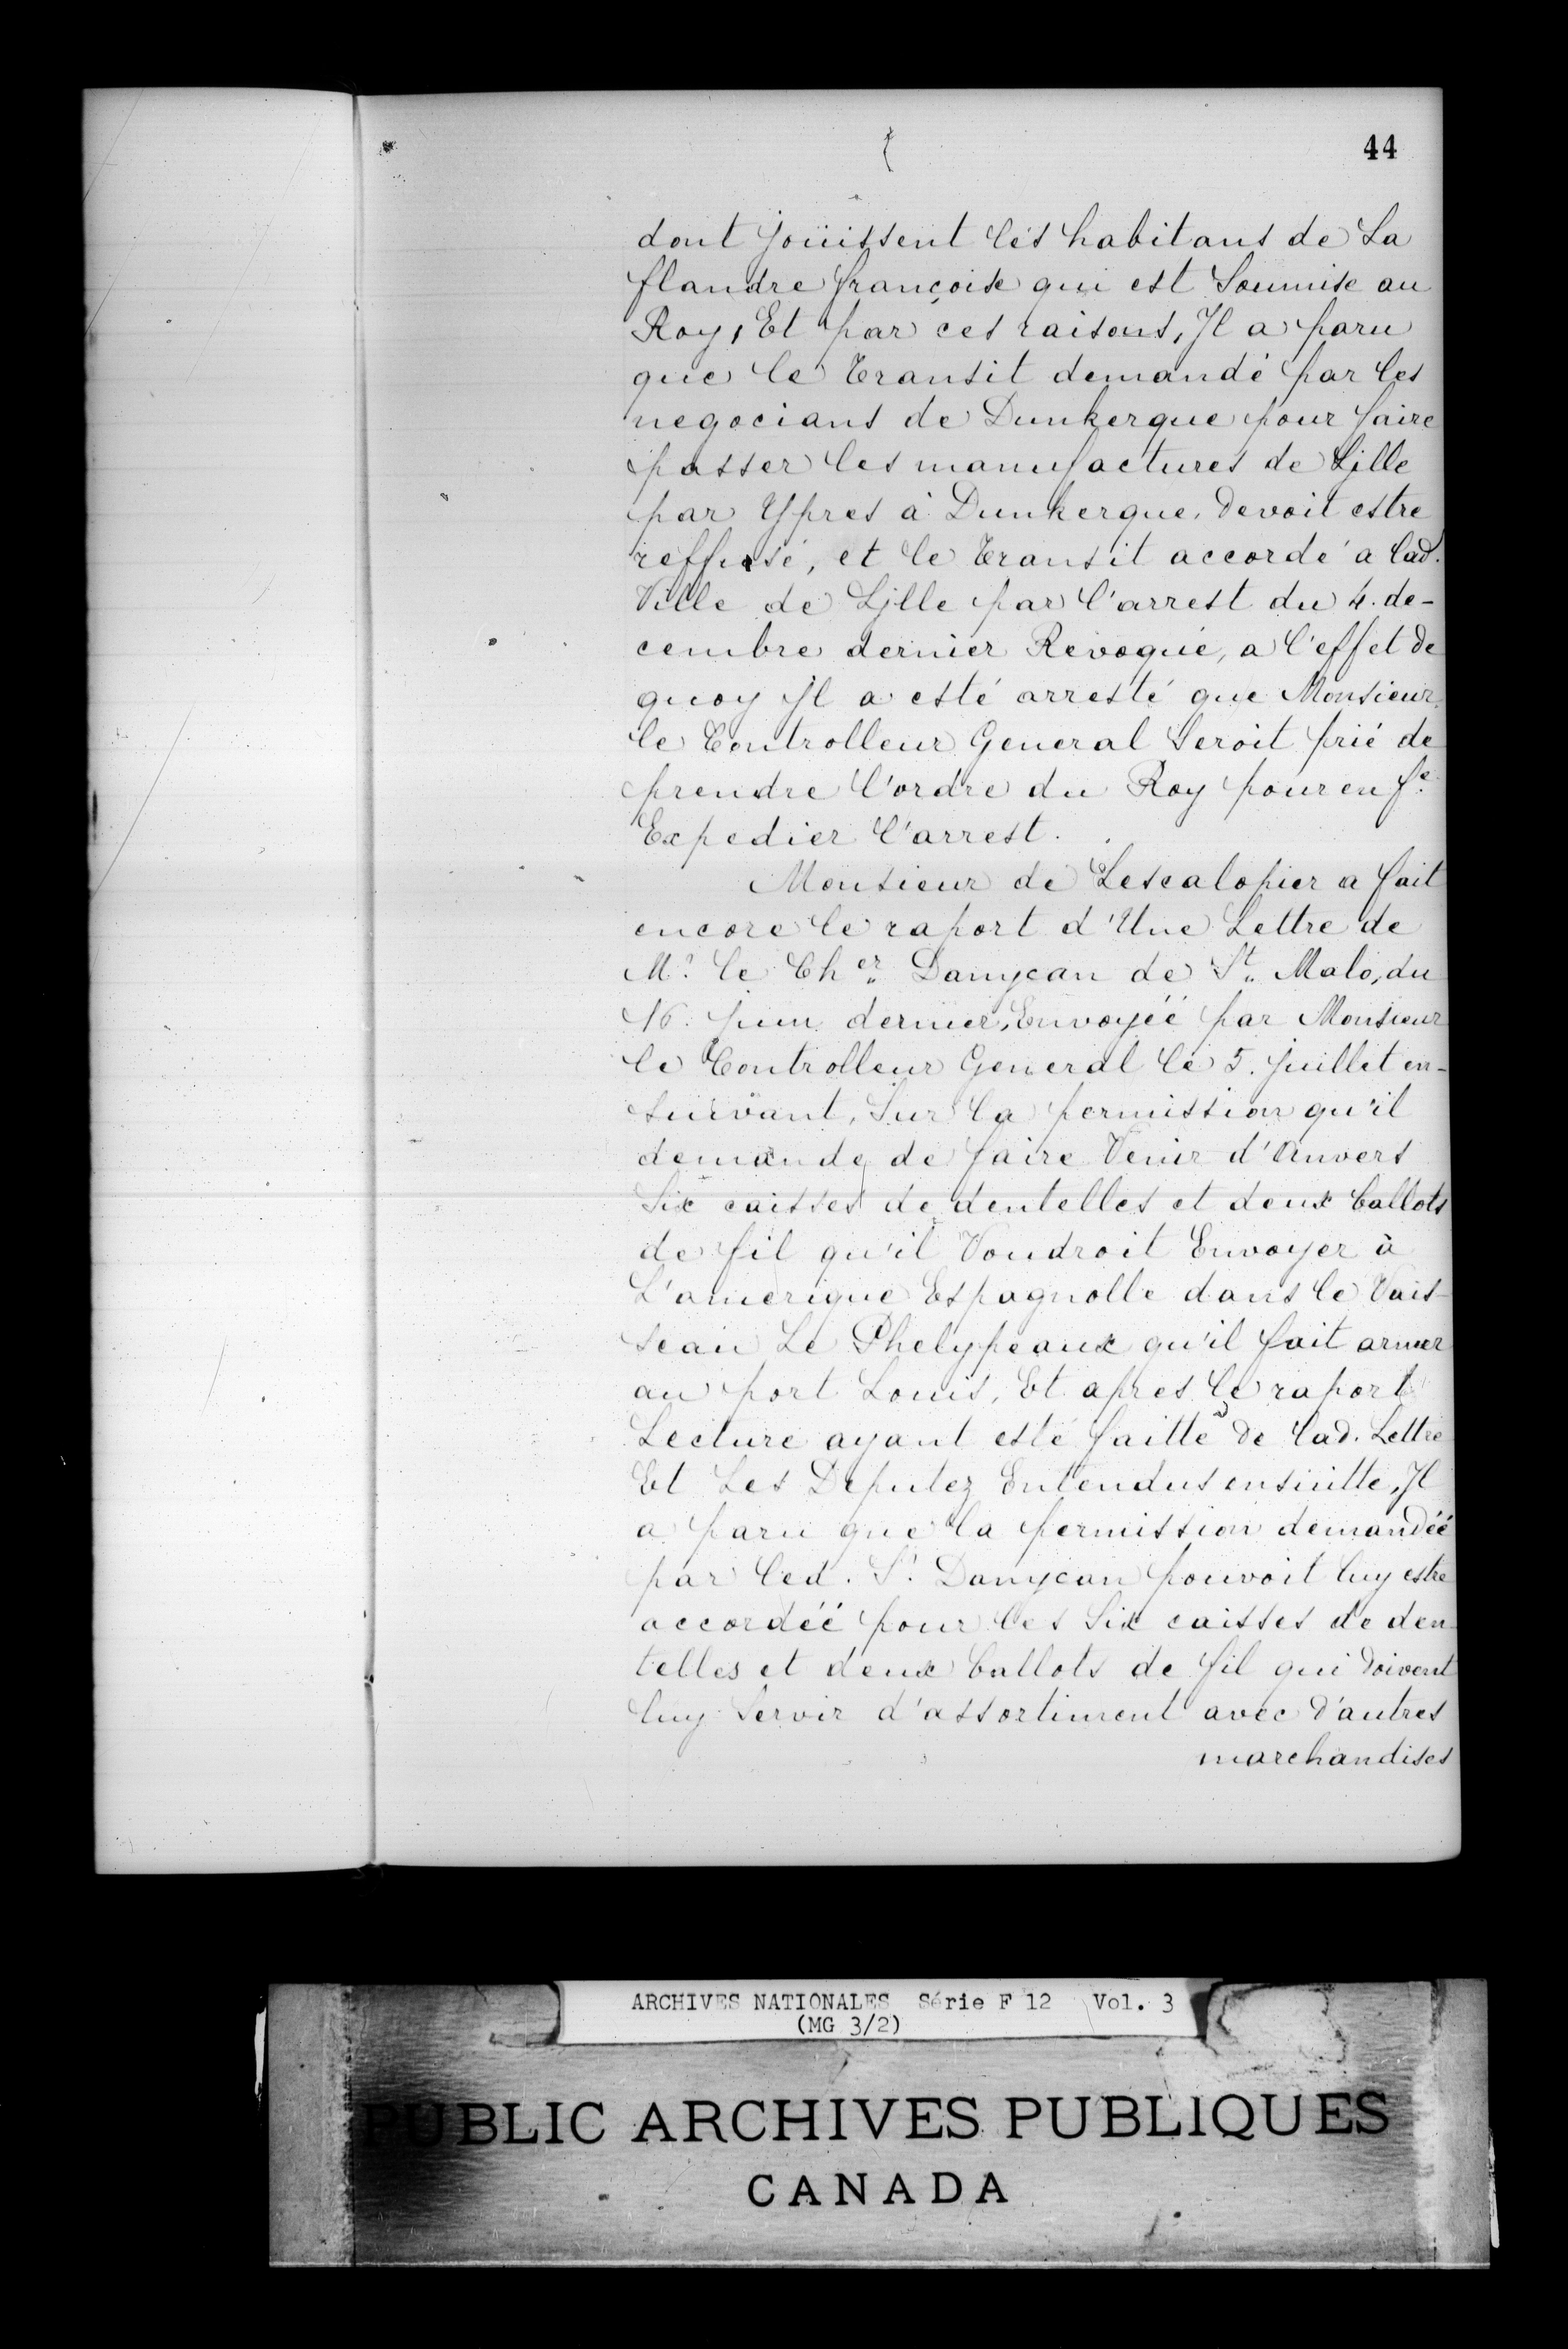 44
dont joüissent les habitans de La
flandre françoise qui est Soumise au
Roy, Et par ces raisons, Jl a paru
que le Transit demandé par les
negocians de Dunkerque pour faire
passer les manufactures de Lille
par Ypres à Dunkerque, devoit estre
reffusé, et le Transit accordé a lad.
Ville de Lille par l'arrest du 4. de-
cembre dernier Revoqué, a l'effet de
quoy Jl a esté arresté que Monsieur
le Controlleur General Seroit prié de
prendre l'ordre du Roy pour en fe.
Expedier l'arrest.
Monsieur de Lescalopier a fait
encore le raport d'Une Lettre de
Mr. le Cher. Danycan de St. Malo, du
16. juin dernier, Envoyéé par Monsieur
le Controlleur General le 5. juillet en-
suivant, Sur la permission qu'il
demande de faire Venir d'Anvers
Six caisses de dentelles et deux ballots
de fil qu'il Voudroit Envoyer à
L'amerique Espagnolle dans le Vais-
seau Le Phelypeaux qu'il fait armer
au port Louis, Et apres le raport
Lecture ayant esté faitte de lad. Lettre
Et Les Deputez Entendus ensuitte, Jl
a paru que la permission demandéé
par led. Sr. Danycan pouvoit luy estre
accordéé pour les Six caisses de den-
telles et deux ballots de fil qui doivent
luy Servir d'assortiment avec d'autres
marchandises
ARCHIVES NATIONALES Série F 12 Vol. 3
(MG 3/2)
PUBLIC ARCHIVES PUBLIQUES
CANADA